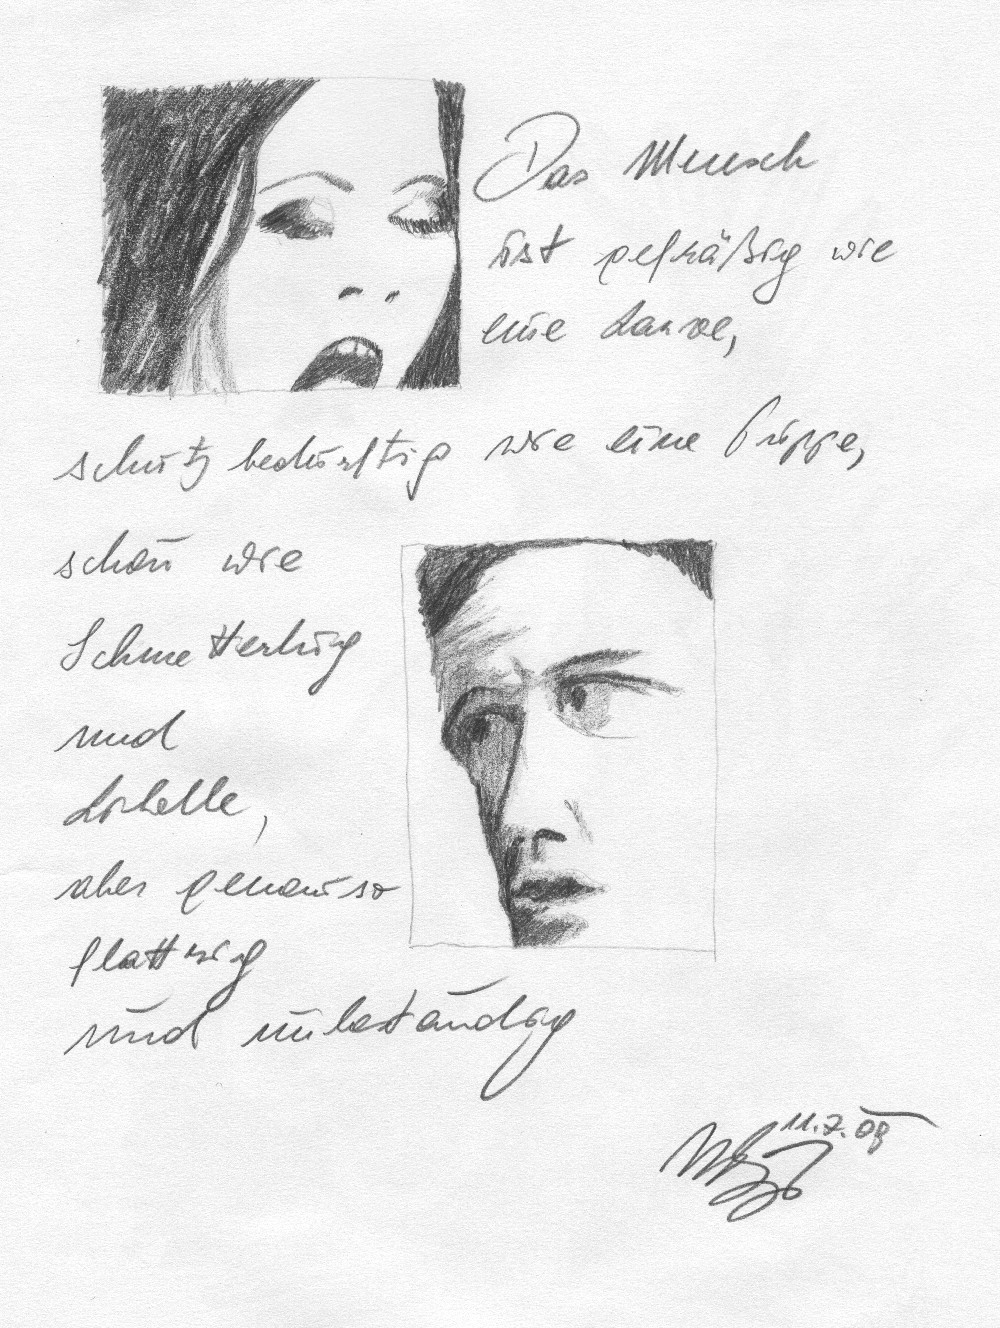 Das Mensch
ist gefräßig wie
eine Larve,
schutzbedürftig wie eine Puppe,
schön wie
Schmetterling
und
Libelle,
aber genauso
flattrig
und unbeständig
11.7.08